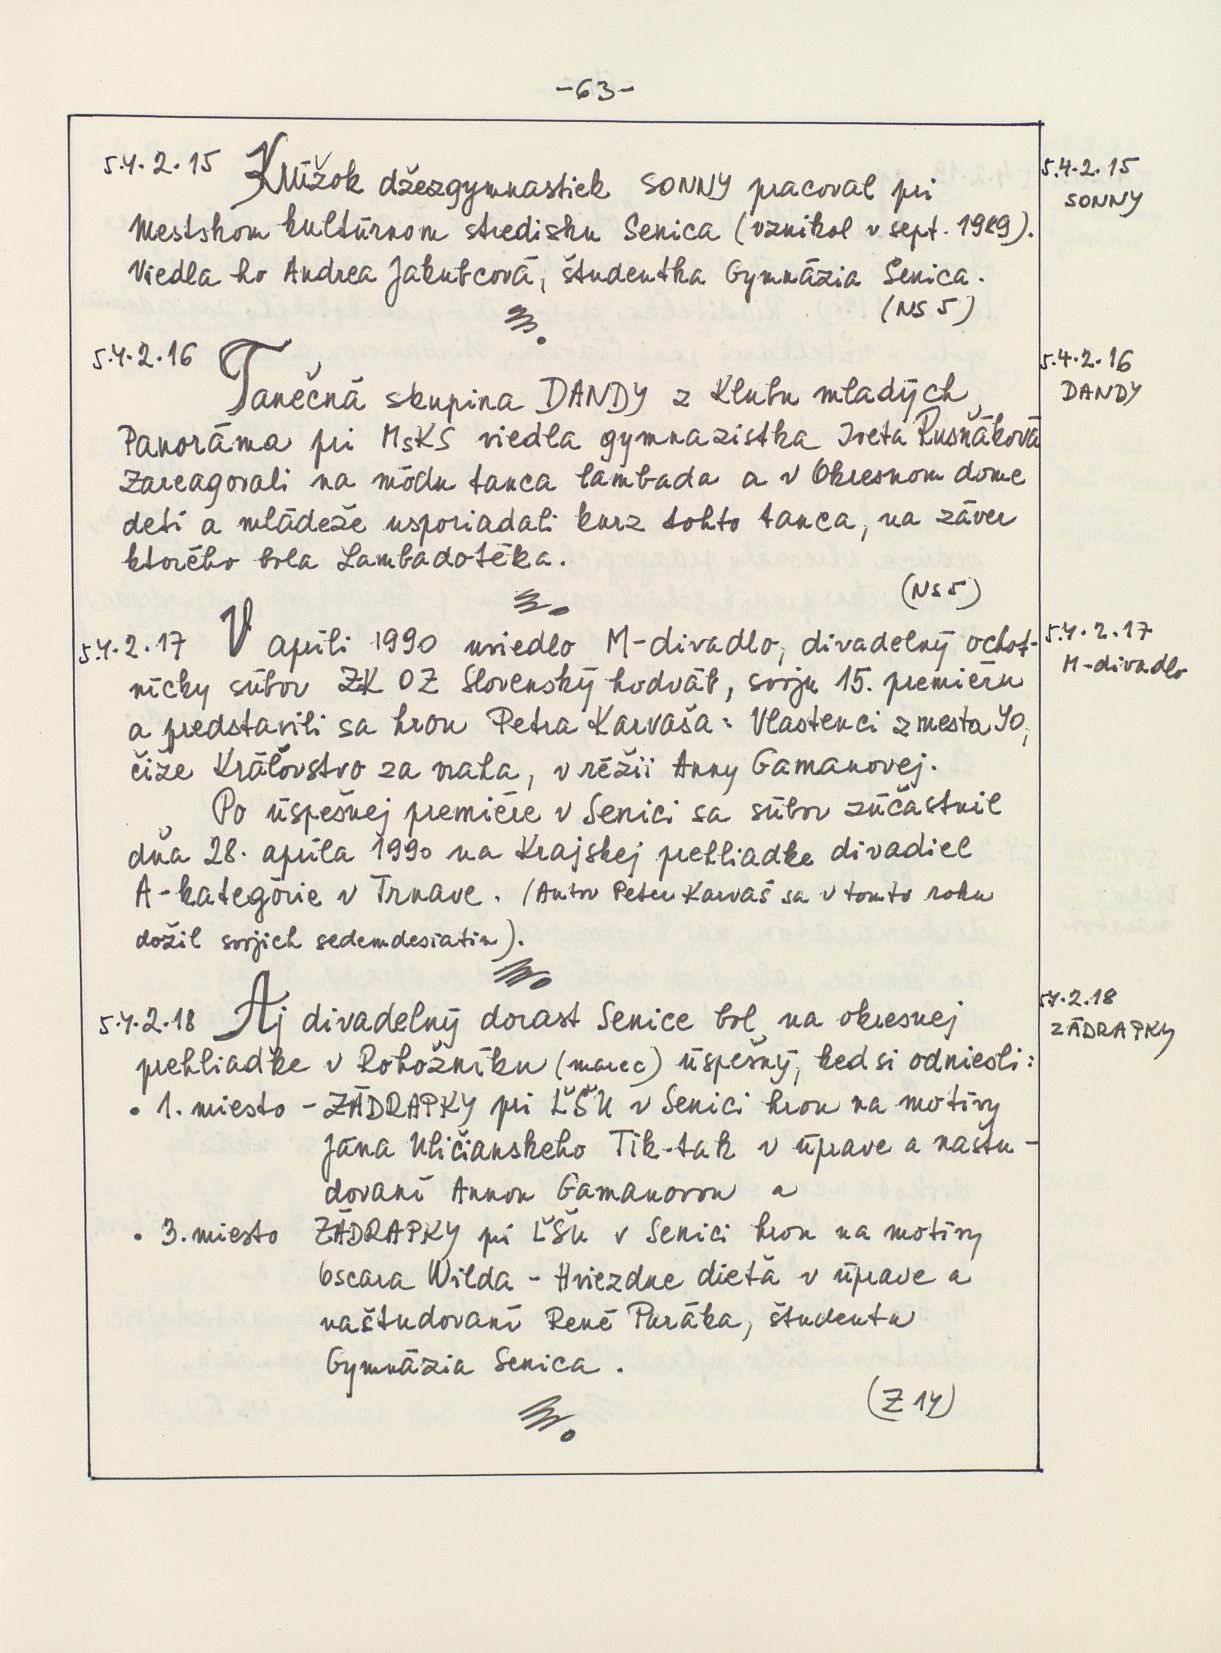 -63-
5.4.2.15 Krúžok džezgymnastiek SONNY pracoval pri
Mestskom kultúrnom stredisku Senica (vznikol v sept. 1989).
Viedla ho Andrea Jakubcová, študentka Gymnázia Senica.
(NS 5)
5.4.2.15
SONNY
5.4.2.16 Tanečná skupina DANDY z Klubu mladých
Panoráma pri MsKS viedla gymnazistka Iveta Rusňáková
Zareagovali na módu tanca lambada a v Okresnom dome
detí a mládeže usporiadali kurz tohto tanca, na záver
ktorého bola Lambadotéka.
(NS 5)
5.4.2.16
DANDY
5.4.2.17 V apríli 1990 uviedlo M-divadlo, divadelný ochot-
nícky súbor ZK OZ Slovenský hodváb, svoju 15. premiéru
a predstavili sa hrou Petra Karvaša: Vlastenci z mesta YO,
čiže Kráľovstvo za vraha, v réžii Anny Gamanovej.
Po úspešnej premiére v Senici sa súbor zúčastnil
dňa 28. apríla 1990 na Krajskej prehliadke divadiel
A-kategórie v Trnave. (Autor Peter Karvaš sa v tomto roku
dožil svojich sedemdesiatin).
5.4.2.17
M-divadlo
5.4.2.18 Aj divadelný dorast Senice bol na okresnej
prehliadke v Rohožníku (marec) úspešný, keď si odniesli:
• 1. miesto - ZÁDRAPKY pri ĽŠU v Senici hrou na motívy
Jána Uličianskeho Tik-tak v úprave a naštu-
dovaní Annou Gamanovou a
• 3. miesto ZÁDRAPKY pri ĽŠU v Senici hrou na motívy
Oscara Wilda - Hviezdne dieťa v úprave a
naštudovaní René Paráka, študenta
Gymnázia Senica.
(Z 14)
5.4.2.18
ZÁDRAPKY